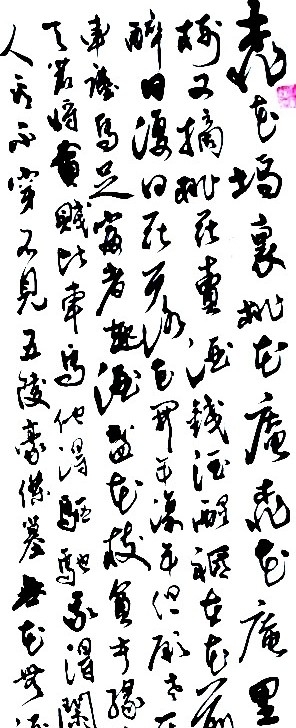 桃花塢裏桃花庵桃花庵里
树又摘桃花賣酒錢酒醒祗在花前
醉日復日花落花開年復年但願老
車塵馬足富者趣酒盞花枝貧者緣
若將貧賤比車馬他得驅馳我得閑
人看不穿不見五陵豪傑墓無花無酒